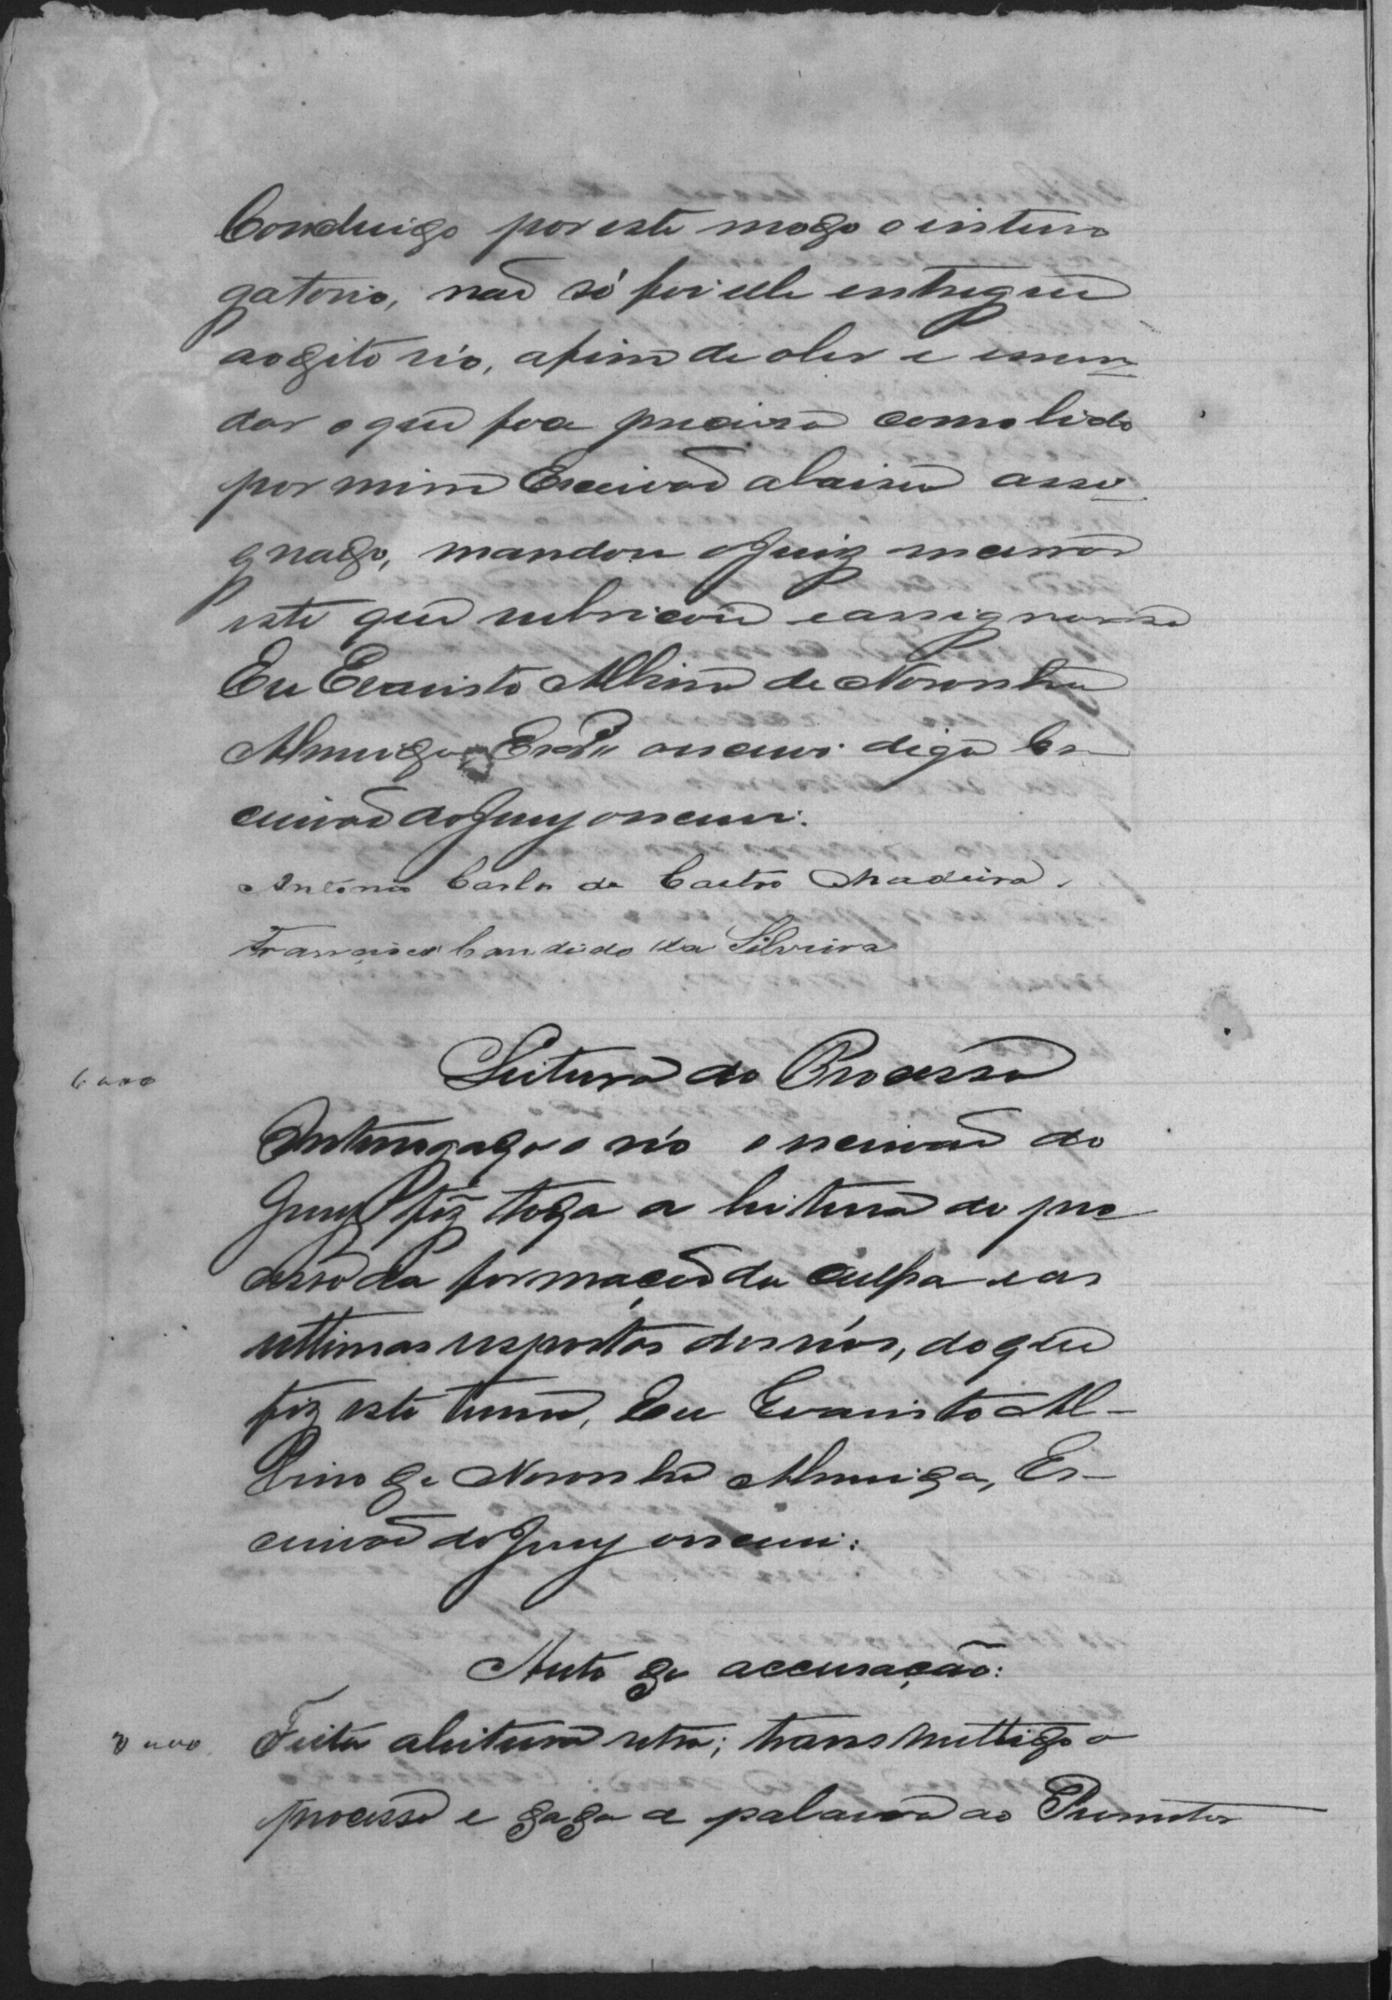 Concluido por este modo o interro
gatorio, não só foi elle entregue
ao dito réo, afim de o ler e emen-
dar o que foce preciso como lido
por mim Escrivão abaixo assi-
gnado, mandou o Juiz lavrar
este que rubricou e assignou se
Eu Evaristo Albino de Noronha
Almeida Escrivão escrevi digo Es-
crivão do Jury o escrevi.
Antonio Carlos de Castro Madeira.
Francisco Candido da Silveira
Leitura do Processo
6000
Interrogado o réo o escrivão do
Jury fez toda a leitura do pro
cesso da formação da culpa e as
ultimas respostas dos réos, do que
fiz este termo, Eu Evaristo Al-
bino de Noronha Almeida, Es-
crivão do Jury o escrevi:
Auto de accusação:
Feita a leitura retro; transmittido o
processo e dada a palavra ao Promotor